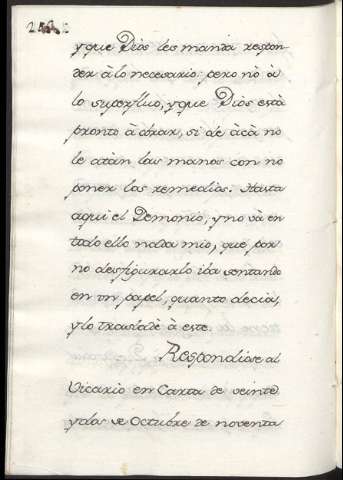 y que Dios les manda respon-
der à lo necesario: pero nò à
lo superfluo, y que Dios està
pronto à obrar, si de àcà no
le atàn las manos con no
poner los remedios. Hasta
aqui el Demonio, y no và en
todo ello nada mio, que por
no desfigurarlo iba sentando
en un papel, quanto decia,
y lo trasladè à este.
Respondiose al
Vicario en Carta de veinte
y dos de Octubre de noventa